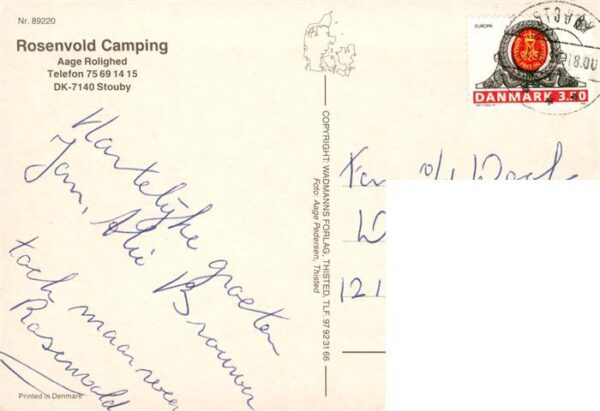 Nr. 89220
Rosenvold Camping
Aage Rolighed
Telefon 75 69 14 15
DK-7140 Stouby
Hartelijke groeten
Jan, Alie Brouwer
toch maar weer
Rosenvold
Printed in Denmark
COPYRIGHT: WADMANNS FORLAG, THISTED, TLF. 97 92 31 66
Foto: Aage Pedersen, Thisted
EUROPA
DANMARK 3.50
STOUBY
Fam
121